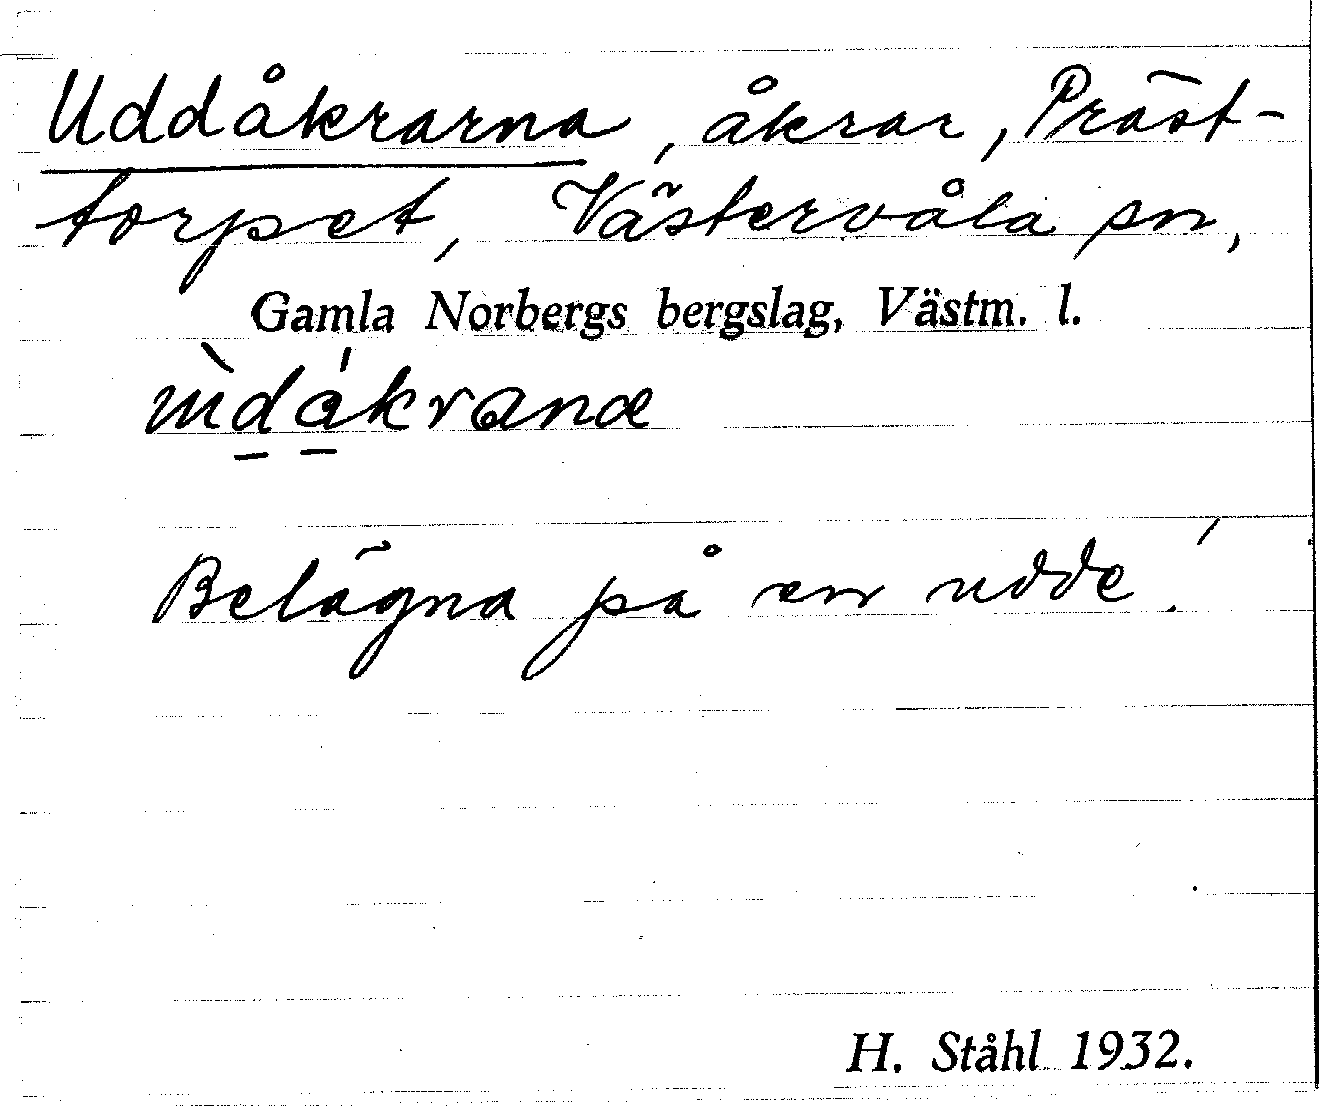 Uddåkrarna, åkrar, Präst-
torpet, Västervåla sn,
Gamla Norbergs bergslag, Västm. l.
Belägna på en udde!
H. Ståhl 1932.